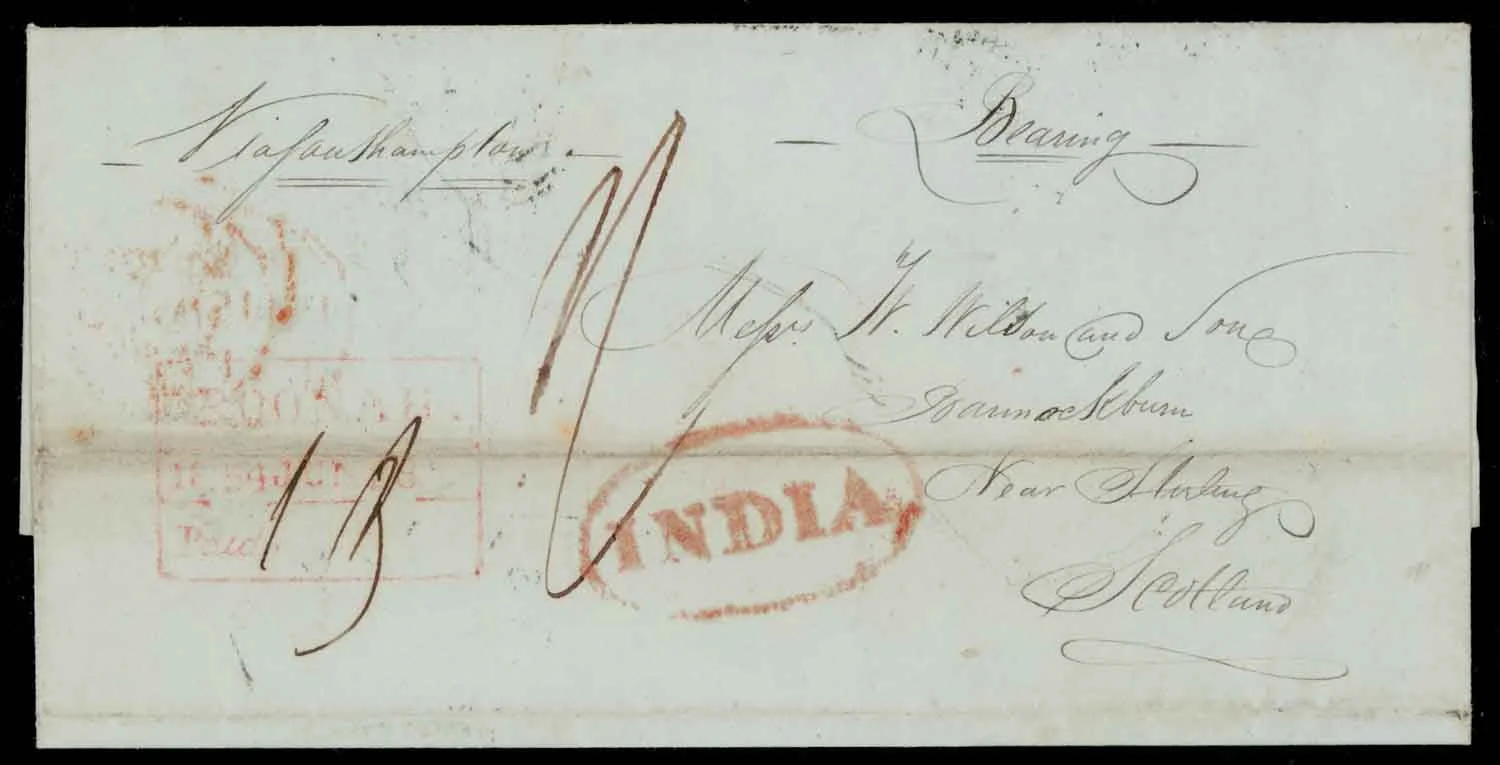 Via Southampton
Bearing
Messrs W. Wilson and Son
Bannockburn
Near Stirling
Scotland
INDIA
Paid